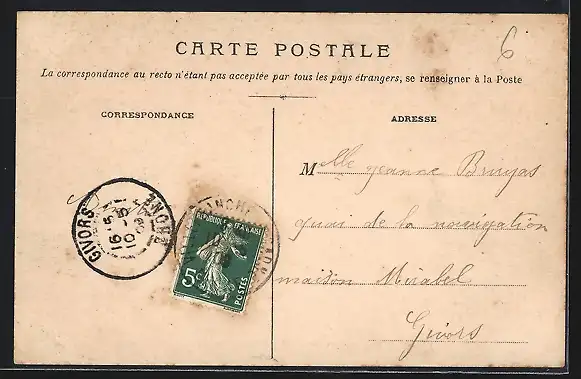 6
CARTE POSTALE
La correspondance au recto n'étant pas acceptée par tous les pays étrangers, se renseigner à la Poste
CORRESPONDANCE
ADRESSE
Melle Jeanne Bruyas
quai de la navigation
maison Mirabel
Givors
GIVORS
RHONE
16-5
10-5
REPUBLIQUE FRANÇAISE
5c
POSTES